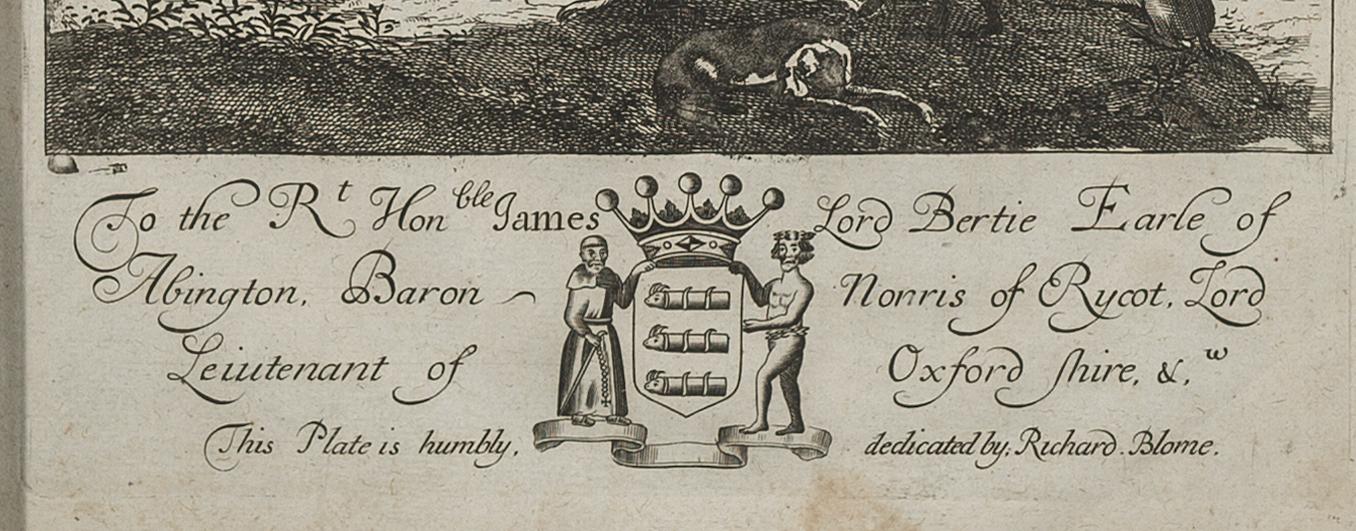 To the Rt Honble James Lord Bertie Earle of
Abington, Baron Norris of Rycot, Lord
Leiutenant of Oxford shire, &,
This Plate is humbly, dedicated by, Richard. Blome.